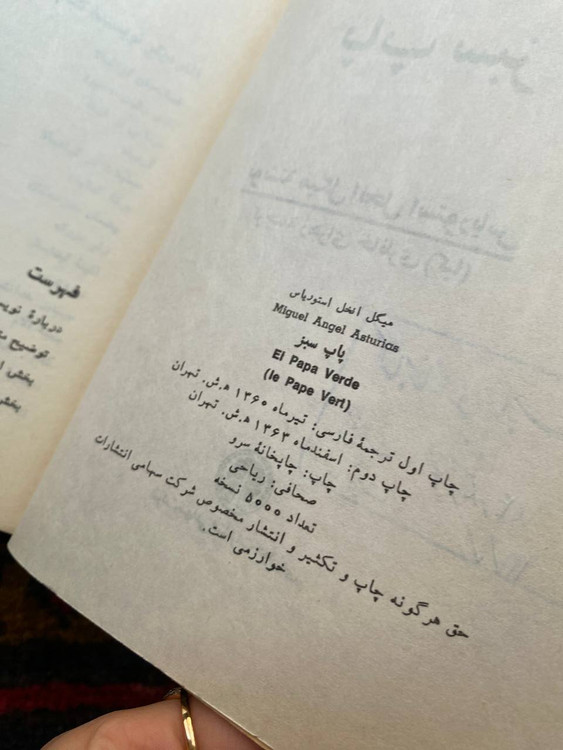 میکل انخل استوریاس
Miguel Angel Asturias
پاپ سبز
El Papa Verde
(le Pape Vert)
چاپ اول ترجمهٔ فارسی: تیرماه ۱۳۶۰ ه‍.ش. تهران
چاپ دوم: اسفندماه ۱۳۶۳ ه‍.ش. تهران
چاپ: چاپخانهٔ سرو
صحافی: ریاحی
تعداد ۵۰۰۰ نسخه
حق هرگونه چاپ و تکثیر و انتشار مخصوص شرکت سهامی انتشارات
خوارزمی است.
فهرست
دربارهٔ
توضیح
بخش
بخش